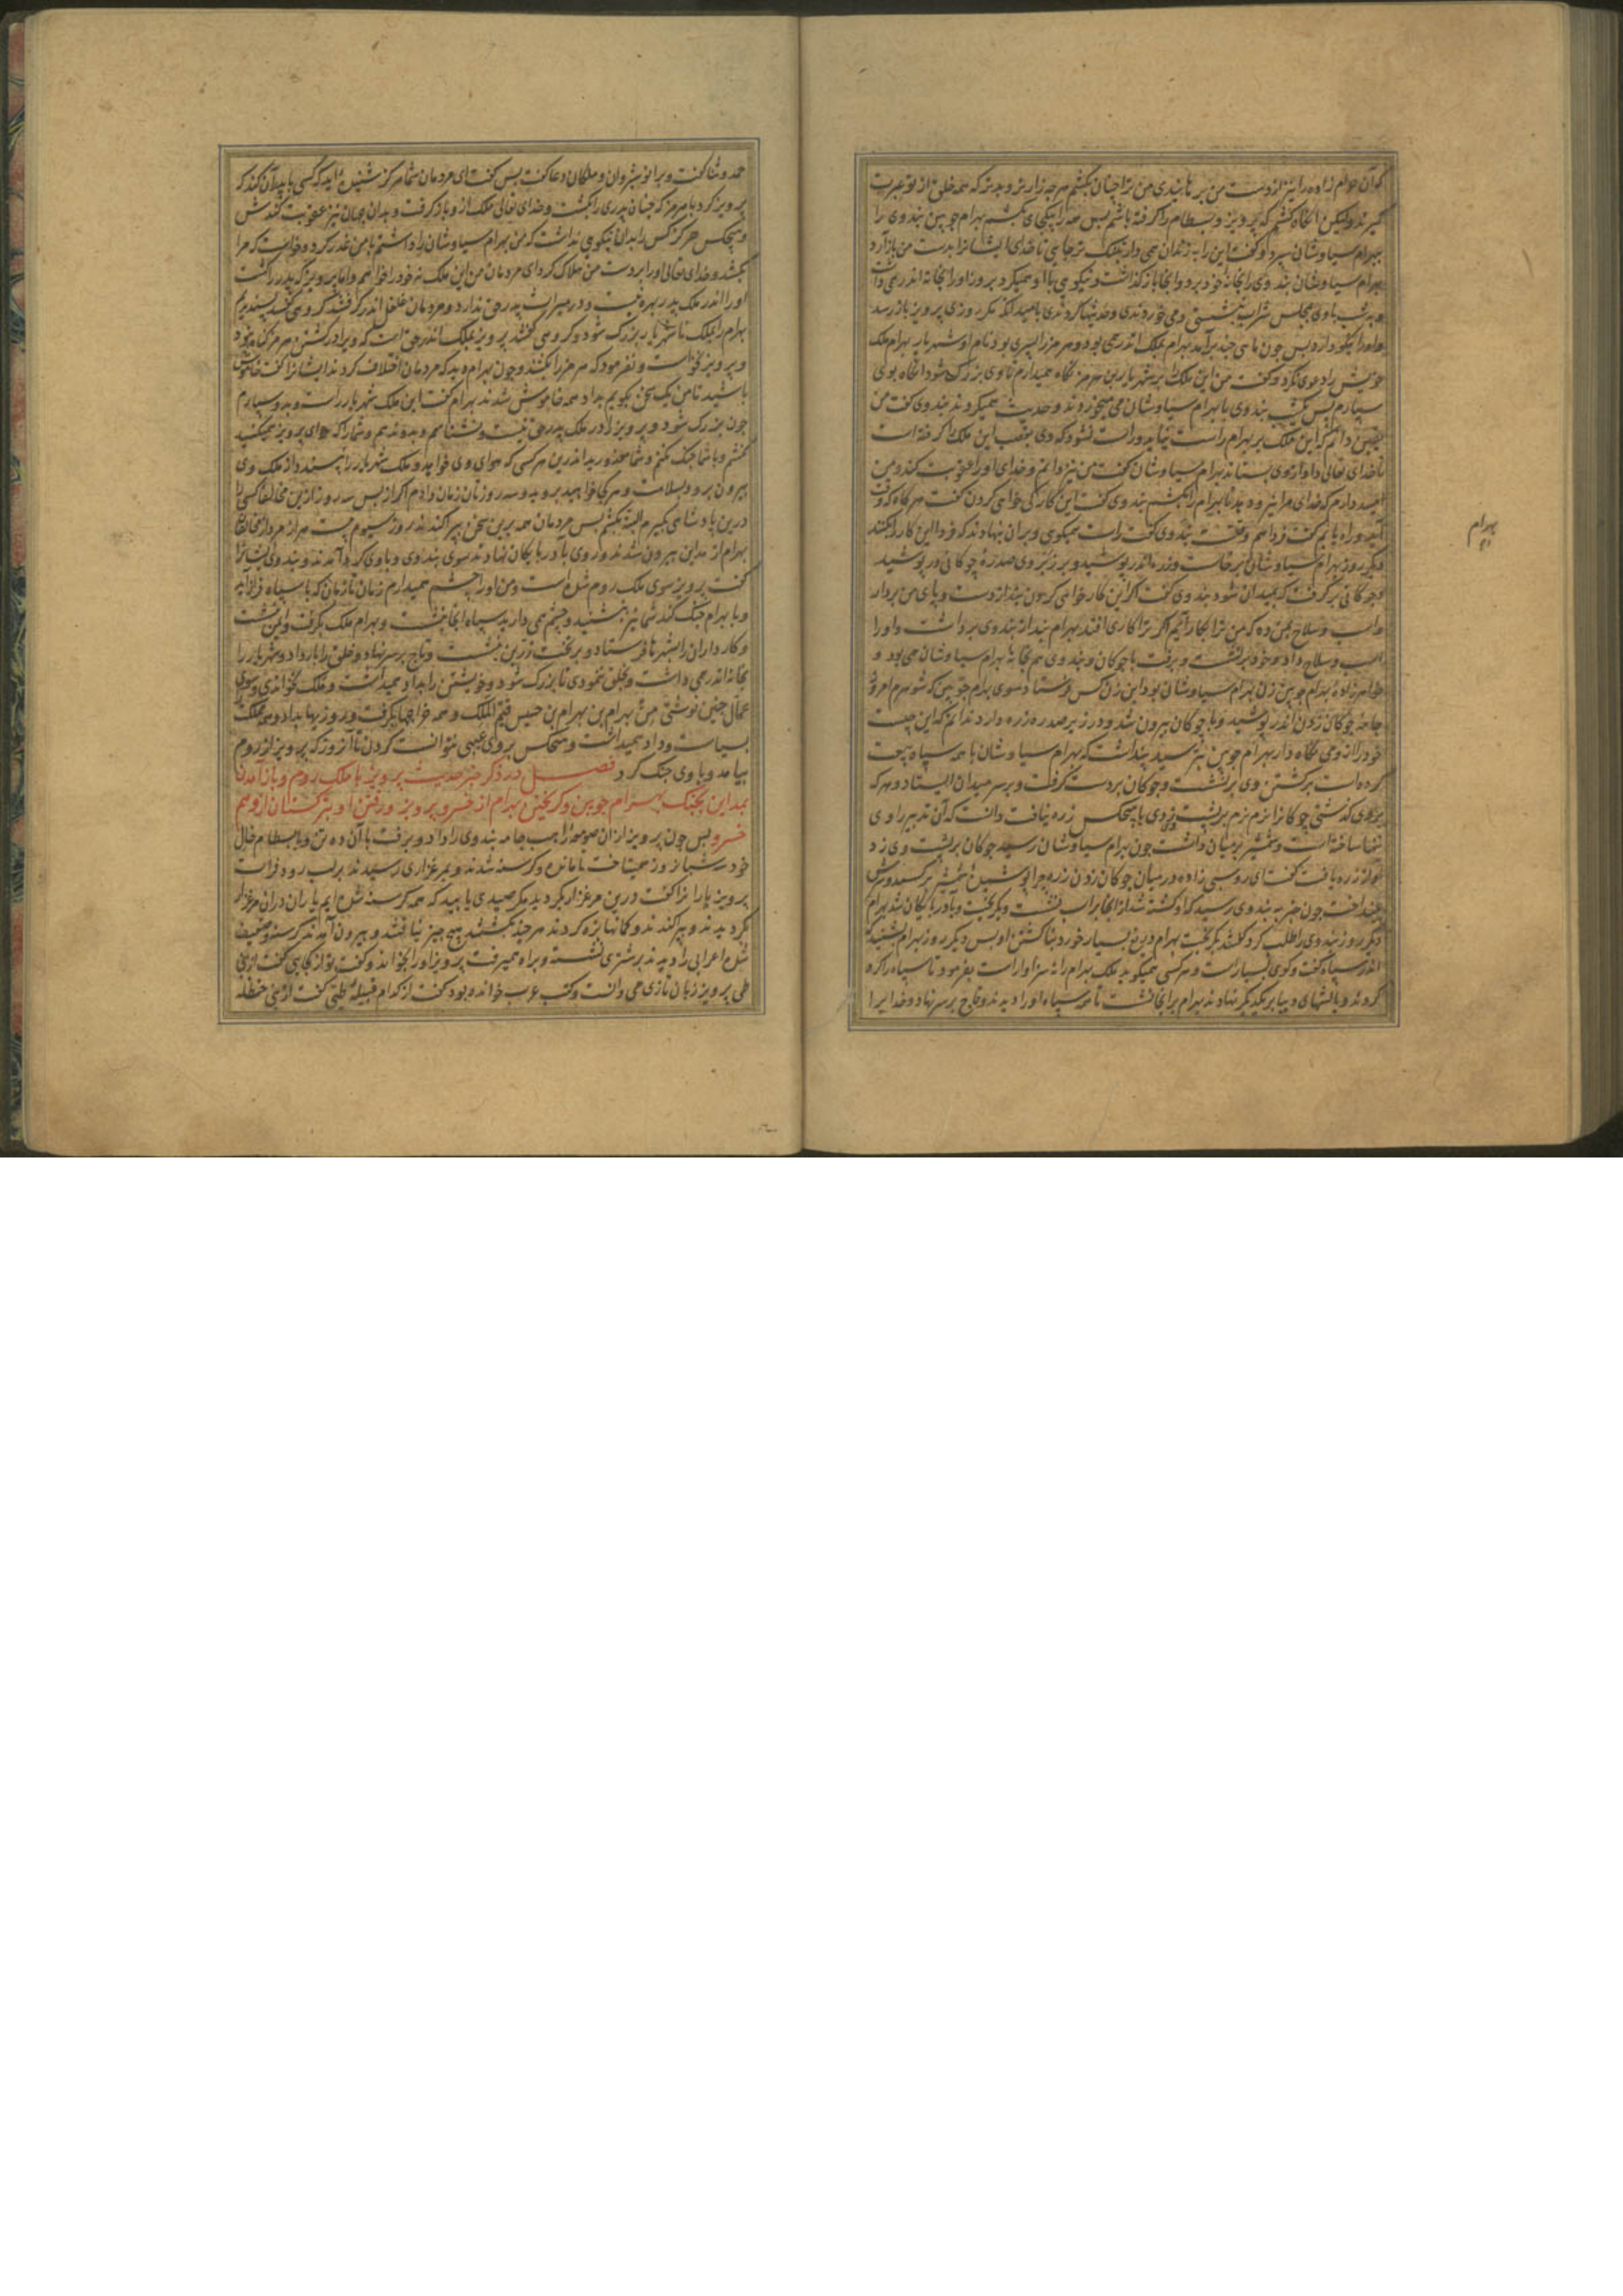 کیرند ولیکن آنگاه کشم که پرویز و بسطام را گرفته باشم پس همه را بیکجای بکشم بهرام چوبین بندوی را
بهرام سیاوشان سپرد و گفت این را بزندان همی دار تنگ تر جایی تا خدای ایشانرا بدست من باز آرد
بهرام سیاوشان بندوی را بخانه خود برد و آنجا باز گذاشت و نیکویی با او همیکرد بروز او را بخانه اندر همی داشت
و بشب با وی بمجلس شراب نشستی و می خوردندی و حدیثها کردندی بامید آنکه مگر روزی پرویز باز رسد
و او را نیکو دارد پس چون ماهی چند برآمد بهرام بملک اندر همی بود و هرمز را پسری بود نام او شهریار بهرام ملک
خویش را دعوی نکرد و گفت من این ملک را بر شهریار بن هرمز نگاه میدارم تا وی بزرگ شود آنگاه بوی
سپارم پس یکشب بندوی با بهرام سیاوشان می میخوردند و حدیث همیکردند بندوی گفت من
یقین دانم که این ملک بر بهرام راست نیاید و راست نشود که وی بغصب این ملک را گرفته است
تا خدای تعالی داد او از وی بستاند بهرام سیاوشان گفت من نیز دانم و خدای او را عقوبت کند و من
امید دارم که خدای مرا نیرو دهد تا بهرام را بکشم بندوی گفت این کار کی خواهی کردن گفت هر گاه که وقت
آید و راه یابم گفت فردا هم وقتست بندوی گفت راست همیگویی و بران نهادند که فردا این کار را بکنند
بهرام
دیگر روز بهرام سیاوشان برخاست و زره اندر پوشید و بر زبر وی صدره چوگانی در پوشید
و چوگانی برگرفت که بمیدان شود بندوی گفت اگر این کار خواهی کردن بند از دست و پای من بردار
و اسب و سلاح بمن ده که من ترا بکار آیم اگر ترا کاری افتد بهرام بند از بندوی برداشت و او را
اسب و سلاح داد و خود برنشست و برفت با چوگان و بندوی هم بخانه بهرام سیاوشان می بود و
خواهرزاده بهرام چوبین زن بهرام سیاوشان بود این زن کس فرستاد سوی بهرام چوبین که شوهرم امروز
جامه چوگان زدن اندر پوشید و با چوگان بیرون شد و در زیر صدره زره دارد ندانم که این چیست
خود را از وی نگاه دار بهرام چوبین بترسید پنداشت که بهرام سیاوشان با همه سپاه بیعت
کرده است بر کشتن وی برنشست و چوگان بردست گرفت و بر سر میدان ایستاد و هر که
بر وی گذشتی چوگانرا نرم نرم بر پشت وی زدی با هیچکس زره نیافت دانست که آن تدبیر او ی
تنها ساخته است و شمشیر بر میان داشت چون بهرام سیاوشان رسید چوگان بر پشت وی زد
آواز زره یافت گفت ای روسپی زاده در میان چوگان زدن زره چرا پوشیده شمشیر برکشید و سرش
بینداخت چون خبر به بندوی رسید که او کشته شد از آنجا بر اسب نشست و بگریخت و بآذربایگان شد بهرام
دیگر روز بندوی را طلب کرد گفتند بگریخت بهرام دریغ بسیار خورد بناکشتن او پس دیگر روز بهرام بشنید که
اندر سپاه گفت و گوی بسیار است و هر کسی همیگوید ملک بهرام را نه سزاوار است بفرمود تا سپاه را گرد
کردند و بالشهای دیبا بر یکدیگر نهادند بهرام برانجا نشست تا همه سپاه او را دیدند و تاج بر سر نهاد و خدایرا
حمد و ثنا گفت و بر انوشیروان و ملکان دعا گفت پس گفت ای مردمان شما هرگز شنیده اید که کسی با پدر آن کند که
پرویز کرد با هرمز که چنان پدری را بکشت و خدای تعالی ملک از و باز گرفت و بدان جهان نیز عقوبت کندش
و هیچکس هرگز کس را بدان نیکویی نداشت که من بهرام سیاوشان را داشتم با من غدر کرد و خواست که مرا
بکشد و خدای تعالی او را بر دست من هلاک کرد ای مردمان من این ملک نه خود را خواهم و اما پرویز که پدر را کشت
او را اندر ملک پدر بهره نیست و در میراث پدر حق ندارد و مردمان غلغل اندر گرفتند گروهی گفتند پسندیدیم
بهرام را بملک تا شهریار بزرگ شود و گروهی گفتند پرویز بملک اندر حق است که ویرا در کشتن هرمز گناه نبود
و پرویز نخواست و نفرمود که هرمز را بکشند و چون بهرام دید که مردمان اختلاف کردند ایشانرا گفت خاموش
باشید تا من یک سخن بگویم بداد همه خاموش شدند بهرام گفت این ملک شهریار راست و بدو سپارم
چون بزرگ شود و پرویز را در ملک پدر حق نیست و نشناسم و بدو ندهم و شما را که هوای پرویز همیکنید
نکشم و با شما جنگ نکنم و شما معذورید اندرین هر کسی که هوای وی خواهد و ملک شهریار را نپسندد از ملک وی
بیرون رود بسلامت و هر کجا خواهید بروید و سه روزتان زمان دادم اگر از پس سه روز از این مخالفان کسی را
درین پادشاهی بگیرم البته بکشم پس مردمان همه برین سخن پراکندند روز سیوم بیست هزار مرد از مخالفان
بهرام از مداین بیرون شدند و روی بآذربایگان نهادند سوی بندوی و با وی گرد آمدند و بندوی ایشانرا
گفت پرویز سوی ملک روم شده است و من او را چشم میدارم زمان تا زمان که با سپاه فراز آید
و با بهرام جنگ کند شما نیز بنشینید و چشم همی دارید سپاه آنجا بنشست و بهرام ملک بگرفت و ایمن نشست
و کارداران را بشهرها فرستاد و بر تخت زرین بنشست و تاج بر سر نهاد و خلق را بار داد و شهریار را
بخانه اندر همی داشت و بخلق ننمودی تا بزرگ شود و خویشتن را بداد میداشت و ملک نخواندی و سوی
عمال چنین نوشتی من بهرام بن بهرام بن حسیس قیم الملک و همه خراجها بگرفت و روزیها بداد و همی مملکت
بسیاست و داد میداشت و هیچکس بر وی عیبی نتوانست کردن تا آنروز که پرویز از روم
بیامد و با وی جنگ کرد فصل در ذکر خبر حدیث پرویز با ملک روم و باز آمدن
بمداین بجنگ بهرام چوبین و گریختن بهرام از خسرو پرویز و رفتن او بترکستان از وهم
خسرو پس چون پرویز از آن صومعه راهب جامه بندوی را داد و برفت با آن ده تن و با بسطام خال
خود سه شبانروز همیتاخت تا مانده و گرسنه شدند و بمرغزاری رسیدند بر لب رود فرات
پرویز یارانرا گفت درین مرغزار بگردید مگر صیدی یابید که همه گرسنه شده ایم یاران دران مرغزار
بگردیدند و پراکندند و کمانها بزه کردند هر چند بگشتند هیچ چیز نیافتند و بیرون آمدند گرسنه و ضعیف
شده اعرابی را دیدند بر شتری نشسته و براه همیرفت پرویز او را بخواند و گفت تو از کجایی گفت از بنی
طی پرویز زبان تازی می دانست و کتب عرب خوانده بود گفت از کدام قبیله طیی گفت از بنی حنظله